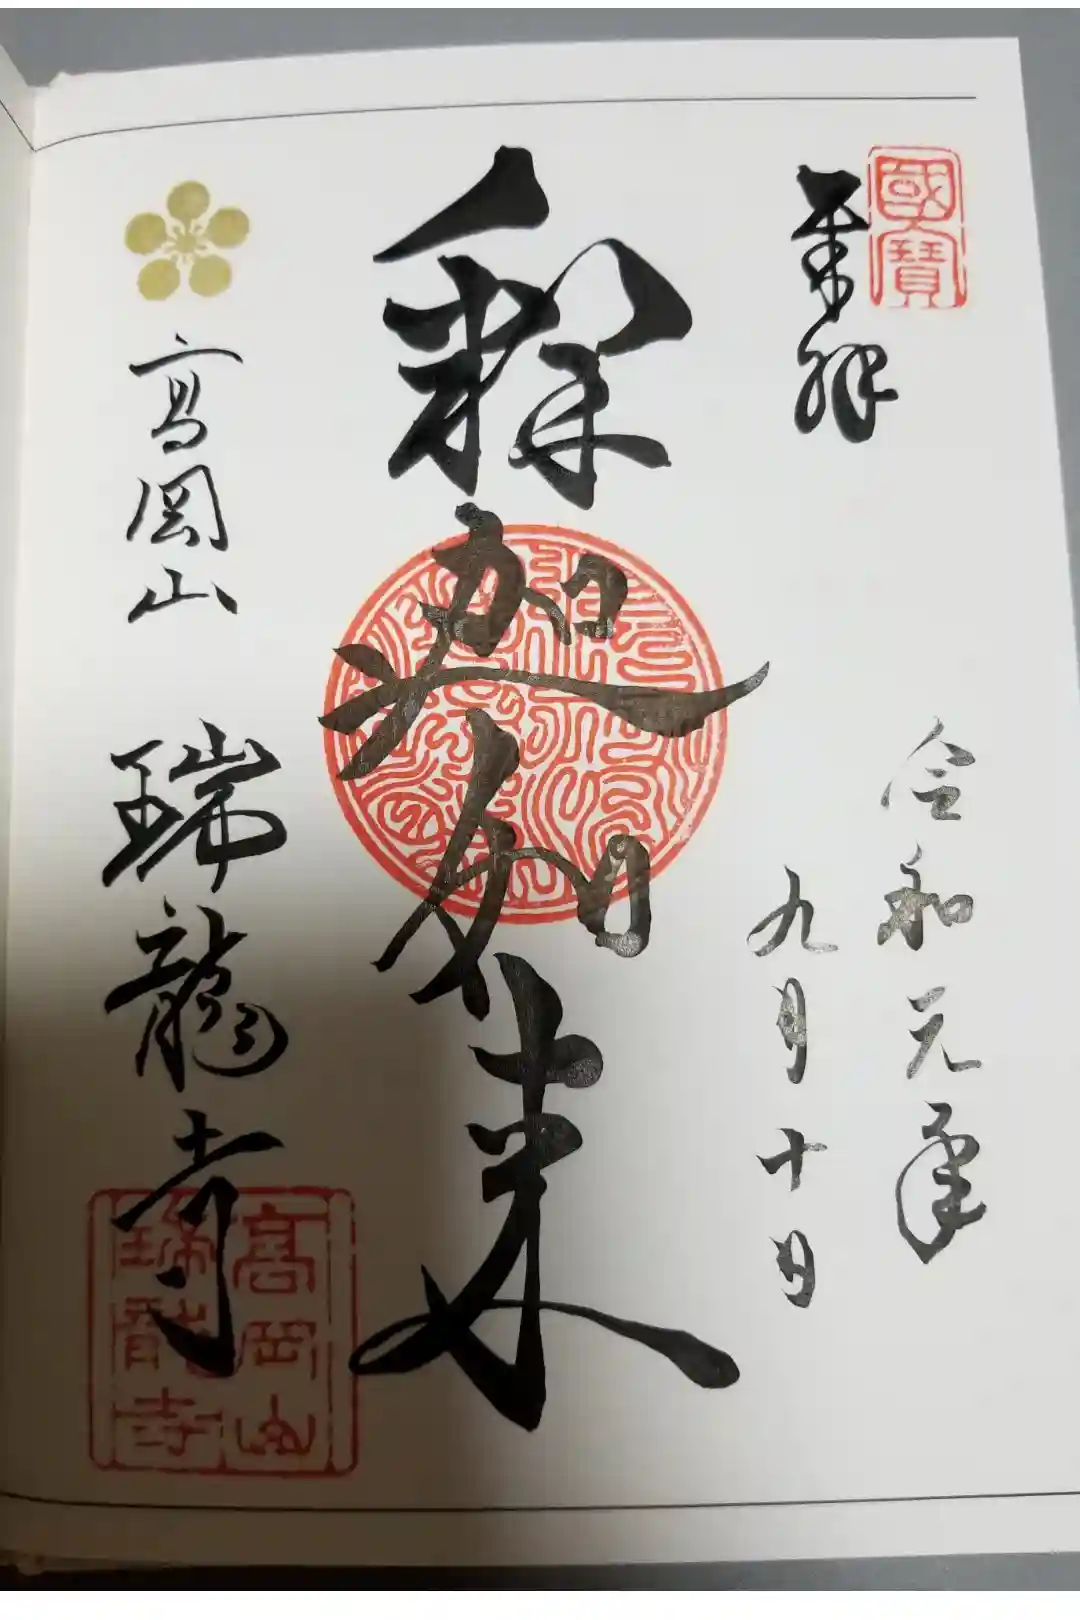 國寳
奉拝
令和元年
九月十日
釈迦如来
高岡山 瑞龍寺
高岡山
瑞龍寺